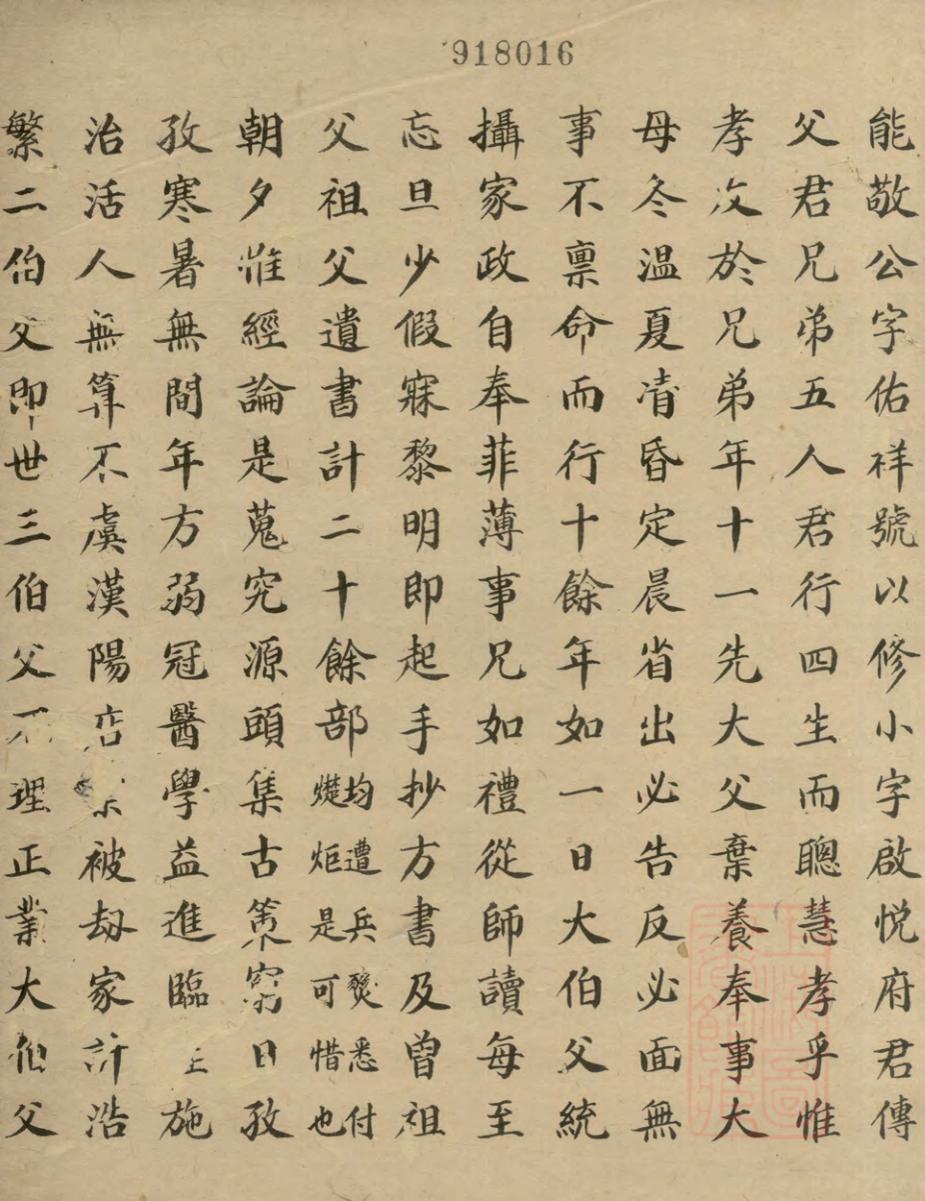 918016
能敬公字佑祥號以修小字啟悅府君傳
父君兄弟五人君行四生而聰慧孝乎惟
孝次於兄弟年十一先大父棄養奉事大
母冬温夏凊昏定晨省出必告反必面無
事不禀命而行十餘年如一日大伯父統
攝家政自奉菲薄事兄如禮從師讀每至
忘旦少假寐黎明即起手抄方書及曾祖
父祖父遺書計二十餘部均遭兵燹悉付煨炬是可惜也
朝夕惟經論是蒐究源頭集古策窮日孜
孜寒暑無間年方弱冠醫學益進臨上施
治活人無算不虞漢陽店被劫家計浩
繁二伯父即世三伯父不理正業大伯父